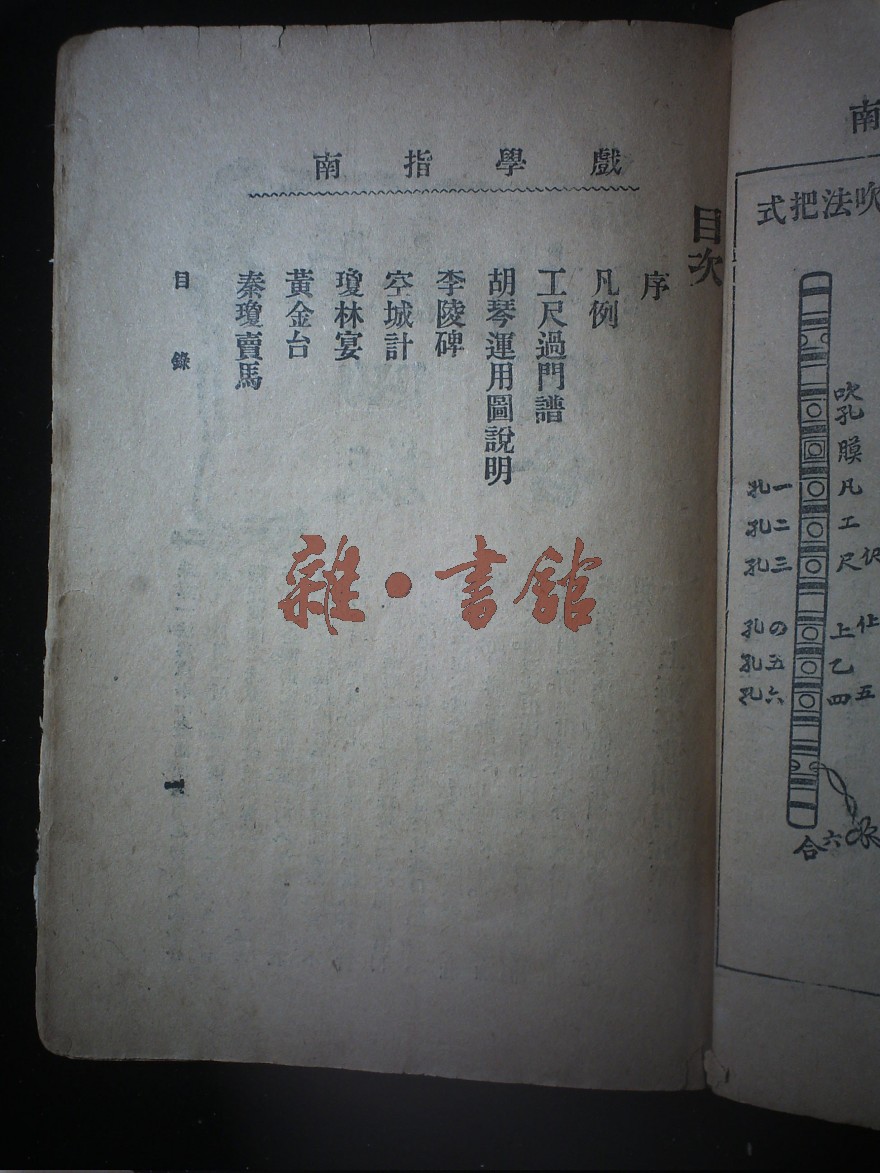 戲學指南
目次
序
凡例
工尺過門譜
胡琴運用圖說明
李陵碑
空城計
瓊林宴
黃金台
秦瓊賣馬
目錄
一
雜·書館
南
吹法把式
吹孔
膜
凡 一孔
工 二孔
尺 三孔
上 四孔
乙 五孔
五 四 六孔
合 六